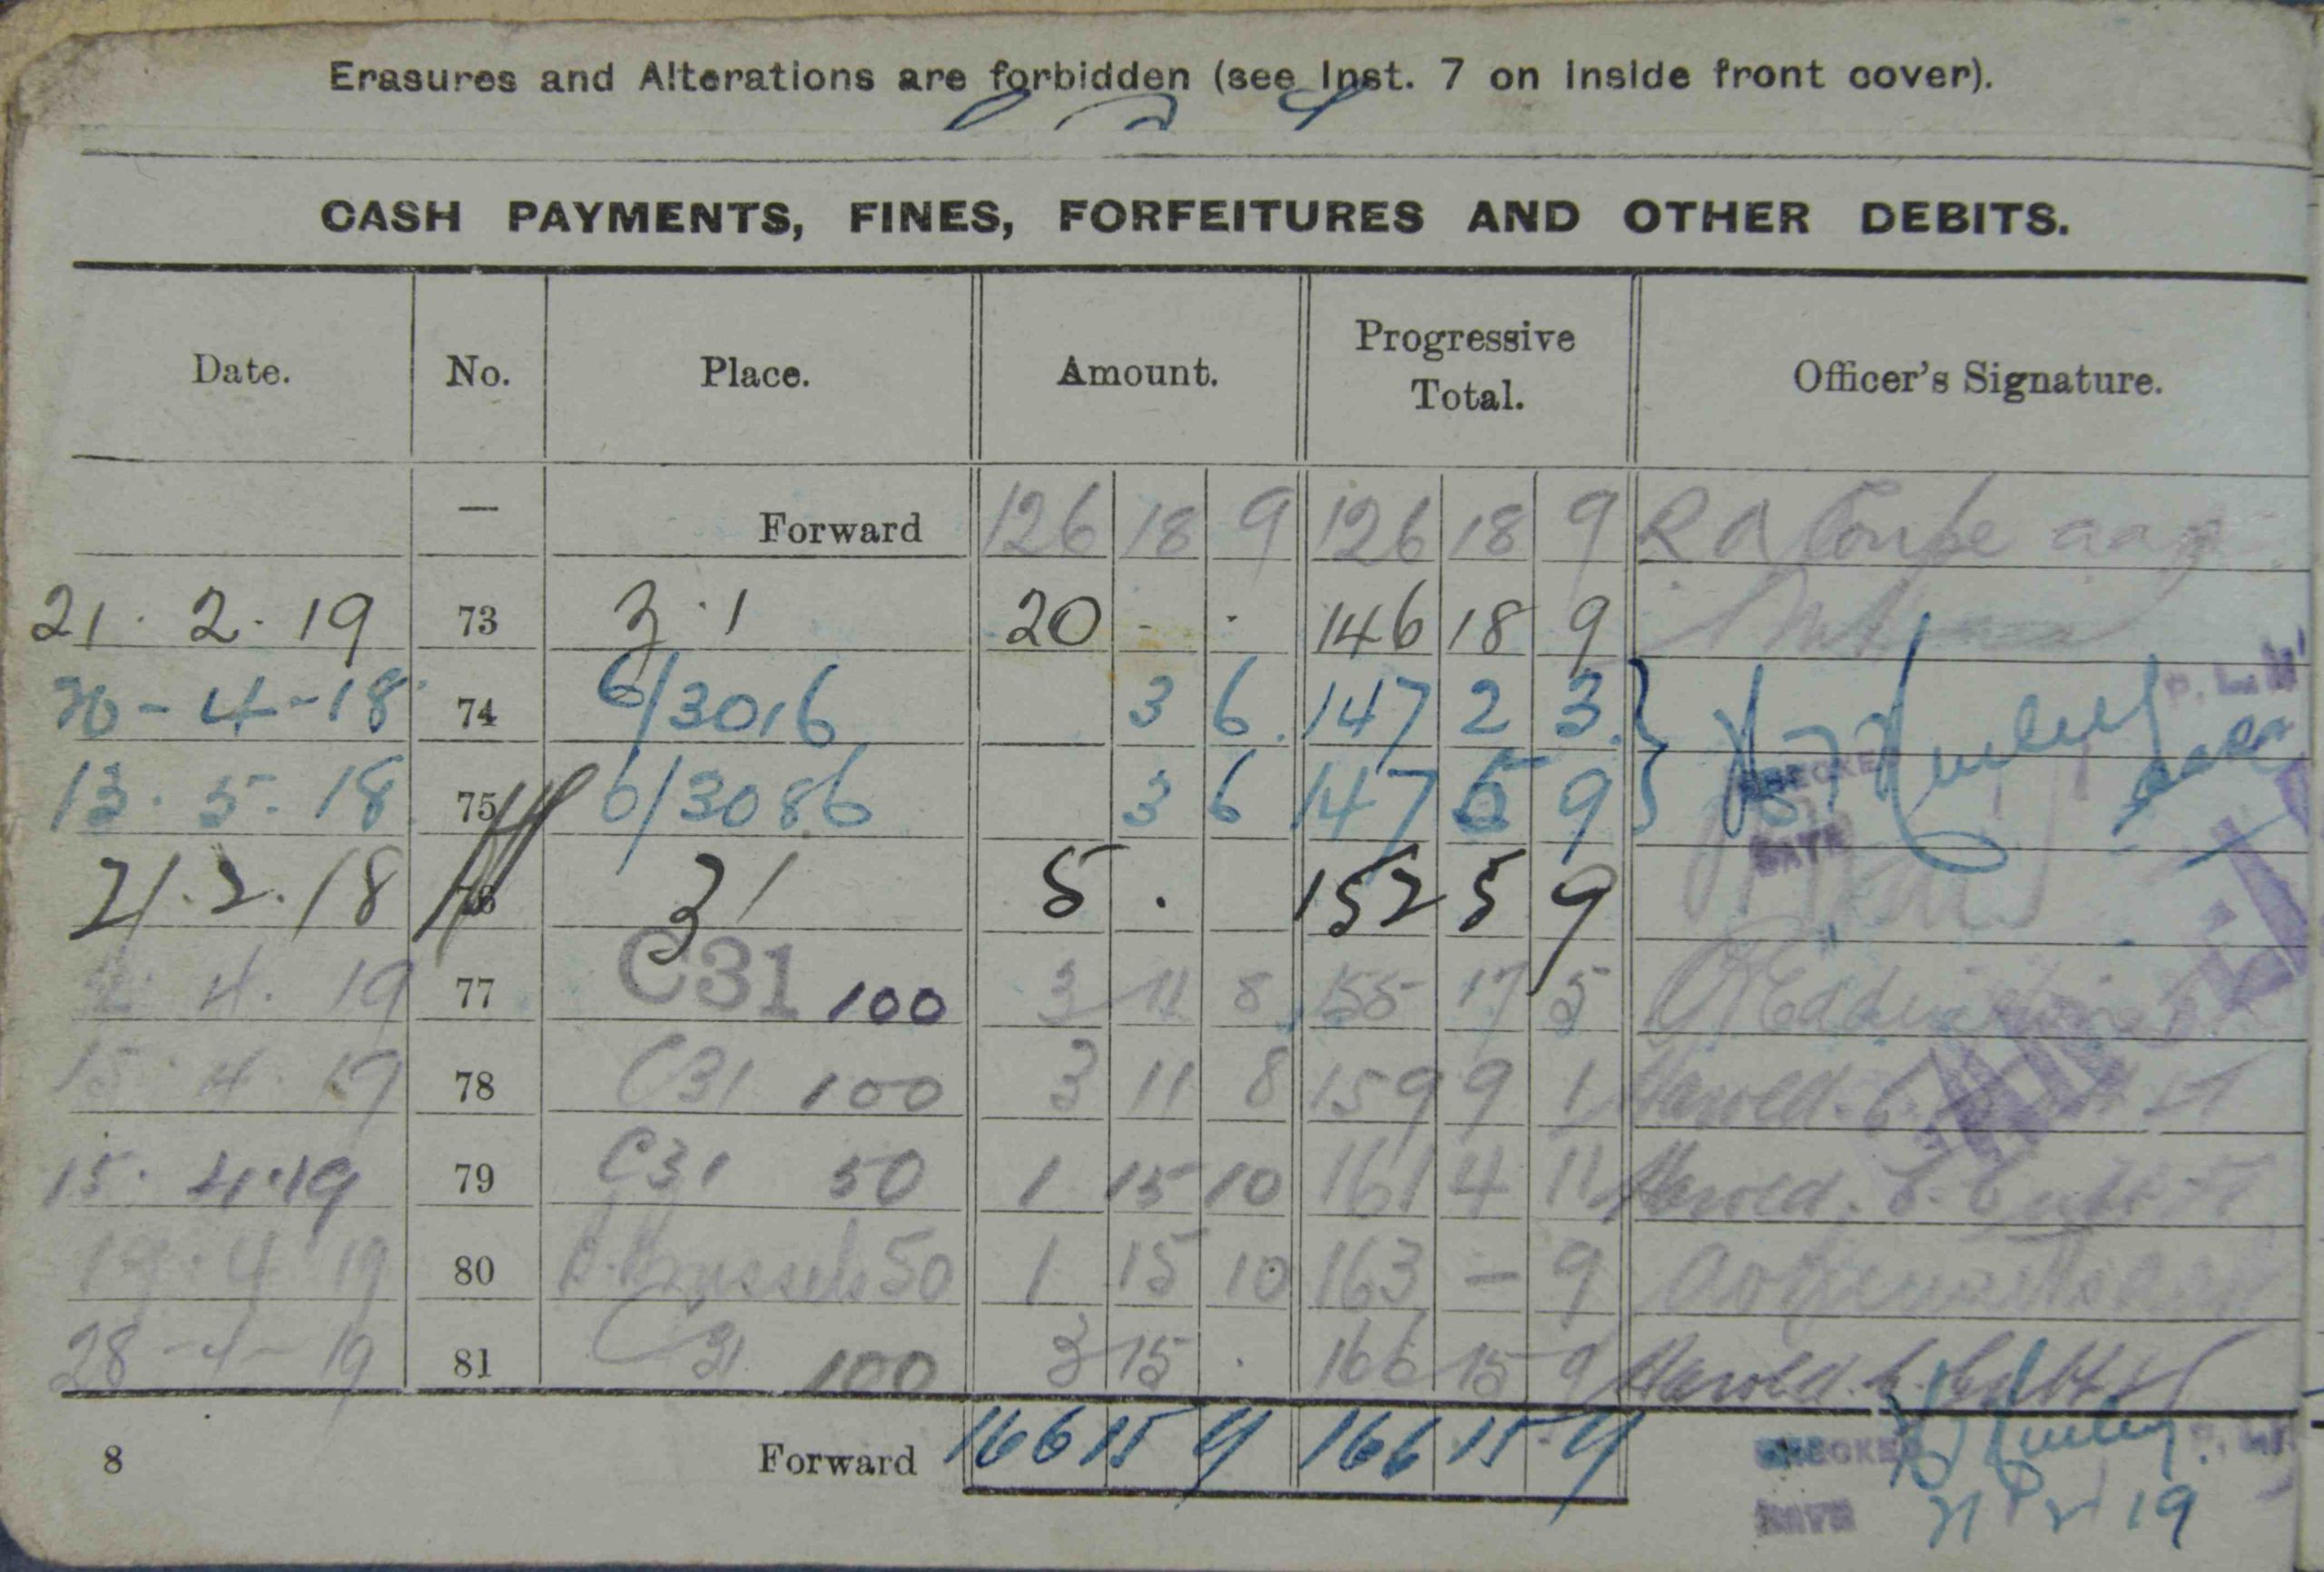 Erasures and Alterations are forbidden (see Inst. 7 on inside front cover).
CASH PAYMENTS, FINES, FORFEITURES AND OTHER DEBITS.
Date. No. Place. Amount. Progressive Total. Officer's Signature.
— Forward 126 18 9 126 18 9 R A
21. 2. 19 73 3.1 20 - . 146 18 9
-4-18 74 6/3016 3 6. 147 2 3.
13. 5. 18 75 6/3086 3 6 147 5 9
21.2.18 76 31 5 . 152 5 9
4. 19 77 C31 100 3 11 8 155 17 5
15. 4. 19 78 C31 100 3 11 8 159 9 1 Harold.
15. 4.19 79 C31 50 1 15 10 161 4 11 Harold.
19.4 19 80 Brussels 50 1 15 10 163 - 9
28-4-19 81 C31 100 3 15 . 166 15 9 Harold.
8 Forward 166 15 9 166 15 9
CHECKED
DATE
19